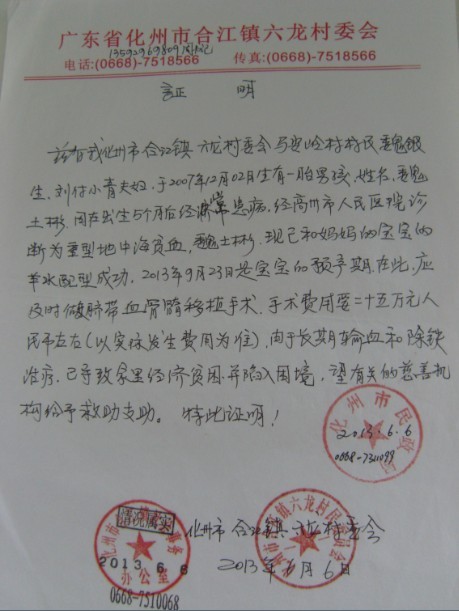 广东省化州市合江镇六龙村委会
电话:(0668)-7518566 传真:(0668)-7518566
13592969809
証 明
兹有我化州市合江镇六龙村委会马安岭村村民魏银
生、刘付小青夫妇,于2007年12月02日生有一胎男孩,姓名,魏
土彬,因在出生5个月后经常患病,经高州市人民医院诊
断为重型地中海贫血,魏土彬,现已和妈妈的宝宝的
羊水配型成功,2013年9月23日是宝宝的预产期,在此,应
及时做脐带血骨髓移植手术,手术费用要二十五万元人
民币左右(以实际发生费用为准),由于长期输血和除铁
治疗,已导致家里经济贫困,并陷入困境,望有关的慈善机
构给予救助支助。 特此证明!
化州市民政局
2013.6.6
0668-7311099
情况属实
2013 6 8
办公室
0668-7510068
化州市合江镇六龙村委会
2013年6月6日